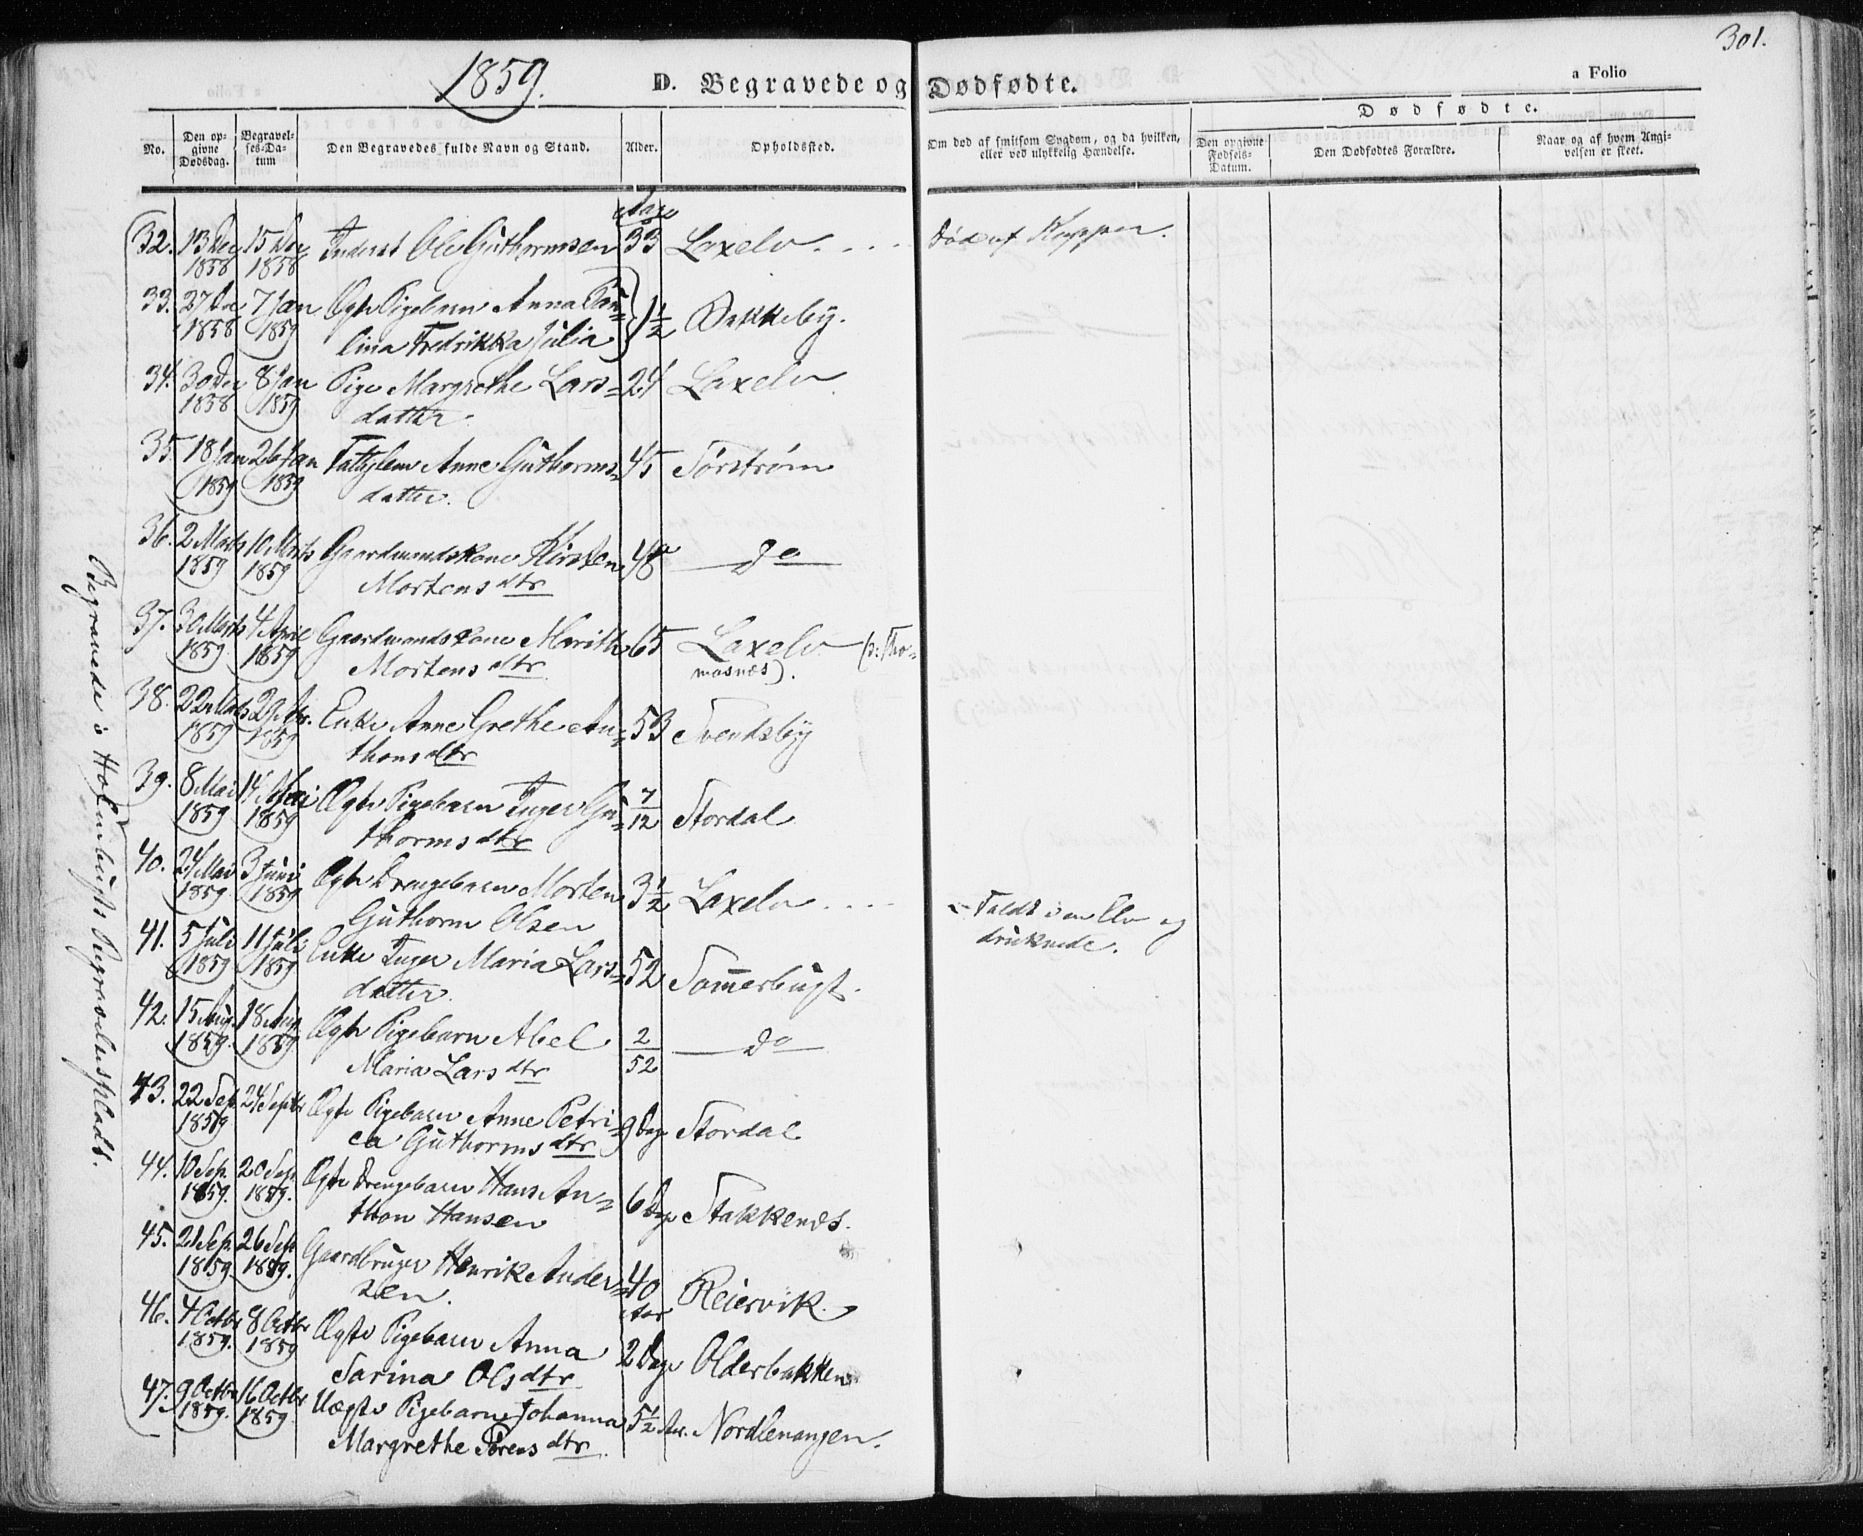 301.
1859.
D. Begravede og Dødfødte.
a Folio
No.
Den op-
givne
Dødsdag.
Begravel-
ses-Da-
tum
Den Begravedes fulde Navn og Stand.
Alder.
Opholdssted.
Om død af smitsom Sygdom, og da hvilken,
eller ved ulykkelig Hændelse.
Dødfødte.
Den opgivne
Fødsels-
Datum.
Den Dødfødtes Forældre.
Naar og af hvem Angi-
velsen er skeet.
32. 13 Dec 1858 15 Dec 1858 Inderst Ole Guthormsen 33 Laxelv. Død af Kopper.
33. 27 Dec 1858 7 Jan 1859 Ægte Pigebarn Anna Pau=
lina Fredrikka Julia 1½ Bakkeby.
34. 30 Dec 1858 8 Jan 1859 Pige Margrethe Lars=
datter. 24 Laxelv
35. 18 Jan 1859 26 Jan 1859 Fattiglem Anne Guthorms=
datter. 45 Sørstrøm
36. 2 Marts 1859 10 Marts 1859 Gaardmandskone Kirsten
Mortensdtr 48 do
37. 30 Marts 1859 4 April 1859 Gaardmandskone Marith
Mortensdtr 65 Laxelv (ɔ: Tho-
masnæs).
38. 22 Marts 1859 29 Apr. 1859 Enke Anne Grethe An=
thonsdtr 53 Svendsby
39. 8 Mai 1859 14 Mai 1859 Ægte Pigebarn Inger Gu=
thormsdtr 7/12 Stordal
40. 24 Mai 1859 3 Juni 1859 Ægte Drengebarn Morten
Guthorm Olsen 3½ Laxelv Faldt i en Elv og
druknede.
41. 5 Juli 1859 11 Juli 1859 Enke Inger Maria Lars=
datter. 52 Sommerbugt.
42. 15 Aug. 1859. 18 Aug 1859 Ægte Pigebarn Abel
Maria Larsdtr 2/52 do
43. 22 Sep. 1859 24 Septbr Ægte Pigebarn Anne Petri=
ca Guthormsdtr 9 Dage Stordal
44. 10 Sep. 1859. 20 Sep. 1859. Ægte Drengebarn Hans An=
thon Hansen 6 Dage Stakkenes.
45. 21 Sep. 1859. 26 Sep 1859. Gaardbruger Henrik Ander=
sen. 40 Aar Reiervik.
46. 4 Octbr 1859. 8 Octbr 1859 Ægte Pigebarn Anna
Sarina Olsdtr 2 Dage Olderbakken
47. 9 Octbr 1859. 16 Octbr 1859 Uægte Pigebarn Johanna
Margrethe Sørensdtr 5½ Aar. Nordlenangen.
Begravede i Holmbugts Begravelsesplads.